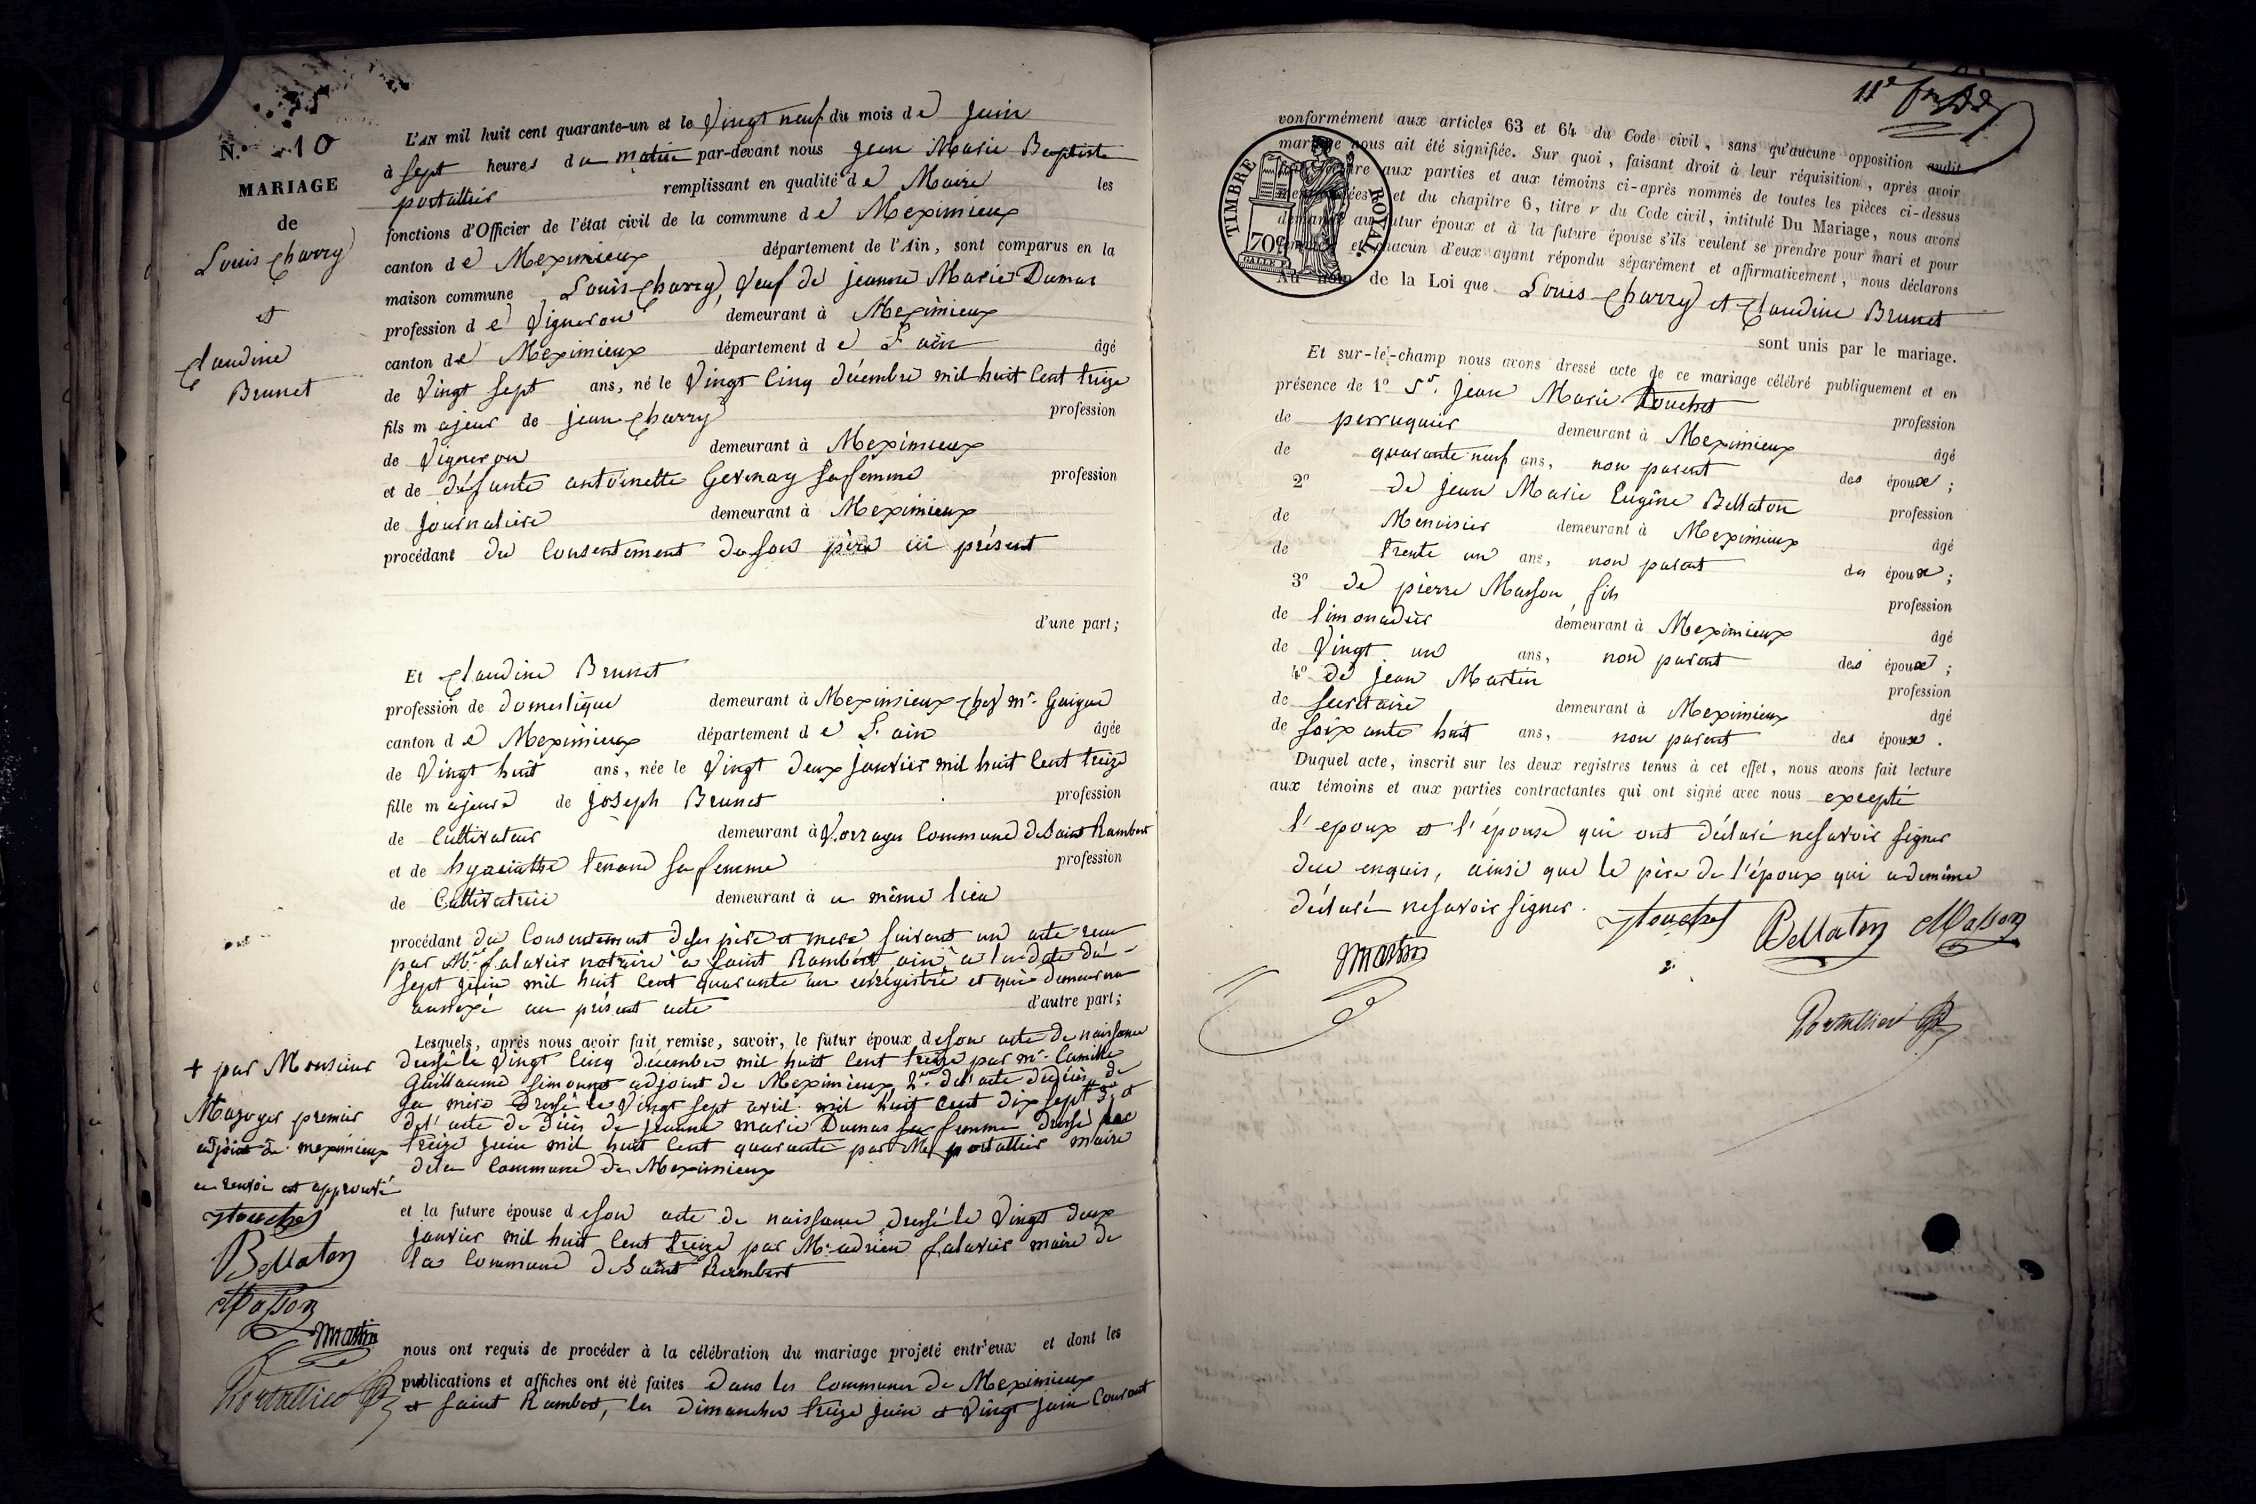 N.° 10
MARIAGE
de
Louis Charry
et
Claudine
Brunet
L'AN mil huit cent quarante-un et le Vingt neuf du mois de Juin
à sept heures du matin par-devant nous Jean Marie Baptiste
portallier remplissant en qualité de Maire les
fonctions d'Officier de l'état civil de la commune de Meximieux
canton de Meximieux département de l'Ain, sont comparus en la
maison commune Louis Charry, Veuf de jeanne Marie Dumas
profession de Vigneron demeurant à Meximieux
canton de Meximieux département de L'ain âgé
de Vingt sept ans, né le Vingt Cinq décembre mil huit Cent treize
fils majeur de jean Charry profession
de Vigneron demeurant à Meximieux
et de défunte antoinette Gervnay sa femme profession
de Journalière demeurant à Meximieux
procédant du Consentement de son père ici présent
d'une part;
Et Claudine Brunet
profession de domestique demeurant à Meximieux Chez mr. Guigue
canton de Meximieux département de L'ain âgée
de Vingt huit ans, née le Vingt deux janvier mil huit Cent treize
fille majeure de joseph Brunet profession
de Cultivateur demeurant à Vorrages Commune de Saint Rambert
et de hyacinthe tenand sa femme profession
de Cultivatrice demeurant à au même lieu
procédant du Consentement de ses père et mere suivant un acte reçu
par Me. falavier notaire à Saint Rambert ain à la date du
sept juin mil huit Cent quarante un enrégistré et qui demeurera
annexé au présent acte d'autre part;
Lesquels, après nous avoir fait remise, savoir, le futur époux de son acte de naissance
dressé le Vingt Cinq decembre mil huit Cent treize par mr. Camille
Guillaume Simonnet adjoint de Meximieux, 2° de l'acte de décès de
sa mère dressé le Vingt sept avril mil huit Cent dix sept 3° et
de l'acte de décès de Jeanne marie Dumas sa femme dressé le
treize juin mil huit Cent quarante par Mr portallier maire
de la Commune de Meximieux
+ par Monsieur
Mazoyer premier
adjoint de meximieux
un renvoi est approuvé
Touchet
Bellaton
Masson
Martin
Portallier
et la future épouse de son acte de naissance dressé le Vingt deux
janvier mil huit Cent treize par Mr. adrien falavier maire de
la Commune de Saint Rambert
nous ont requis de procéder à la célébration du mariage projeté entr'eux et dont les
publications et affiches ont été faites dans les Communes de Meximieux
et Saint Rambert, les dimanches treize juin et Vingt juin Courant
conformément aux articles 63 et 64 du Code civil, sans qu'aucune opposition audit
mariage nous ait été signifiée. Sur quoi, faisant droit à leur réquisition, après avoir
aux parties et aux témoins ci-après nommés de toutes les pièces ci-dessus
et du chapitre 6, titre v du Code civil, intitulé Du Mariage, nous avons
demandé au futur époux et à la future épouse s'ils veulent se prendre pour mari et pour
et chacun d'eux ayant répondu séparément et affirmativement, nous déclarons
Au nom de la Loi que Louis Charry et Claudine Brunet
sont unis par le mariage.
TIMBRE ROYAL
70c
Et sur-le-champ nous avons dressé acte de ce mariage célébré publiquement et en
présence de 1° Sr. Jean Marie Touchet profession
de perruquier demeurant à Meximieux âgé
de quarante neuf ans, non parent des époux;
2° de jean Marie Eugène Bellaton profession
de Menuisier demeurant à Meximieux âgé
de trente un ans, non parent des époux;
3° de pierre Masson fils profession
de limonadier demeurant à Meximieux âgé
de Vingt un ans, non parent des époux;
4° de jean Martin profession
de secrétaire demeurant à Meximieux âgé
de soixante huit ans, non parent des époux.
Duquel acte, inscrit sur les deux registres tenus à cet effet, nous avons fait lecture
aux témoins et aux parties contractantes qui ont signé avec nous excepté
l'epoux et l'épouse qui ont déclaré ne savoir signer
de ce enquis, ainsi que le père de l'époux qui a de même
déclaré ne savoir signer.
Touchet Bellaton Masson
Martin
Portallier